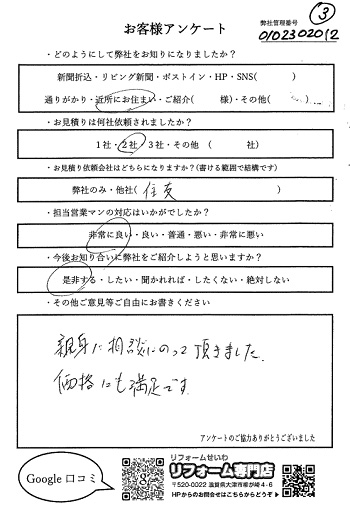 お客様アンケート
弊社管理番号
③
0102302012
・どのようにして弊社をお知りになりましたか？
新聞折込・リビング新聞・ポストイン・HP・SNS(　　　)
通りがかり・近所にお住まい・ご紹介(　　　様)・その他(　　　)
・お見積りは何社依頼されましたか？
1社・2社・3社・その他　(　　　社)
・お見積り依頼会社はどちらになりますか？(書ける範囲で結構です)
弊社のみ・他社(　住友　)
・担当営業マンの対応はいかがでしたか？
非常に良い・良い・普通・悪い・非常に悪い
・今後お知り合いに弊社をご紹介しようと思いますか？
是非する・したい・聞かれれば・したくない・絶対しない
・その他ご意見等ご自由にお書きください
親身に相談にのって頂きました。
価格にも満足です。
アンケートのご協力ありがとうございました
Google口コミ
リフォームせいわ
リフォーム専門店
〒520-0022 滋賀県大津市柳が崎4-6
HPからのお問合せはこちらからどうぞ